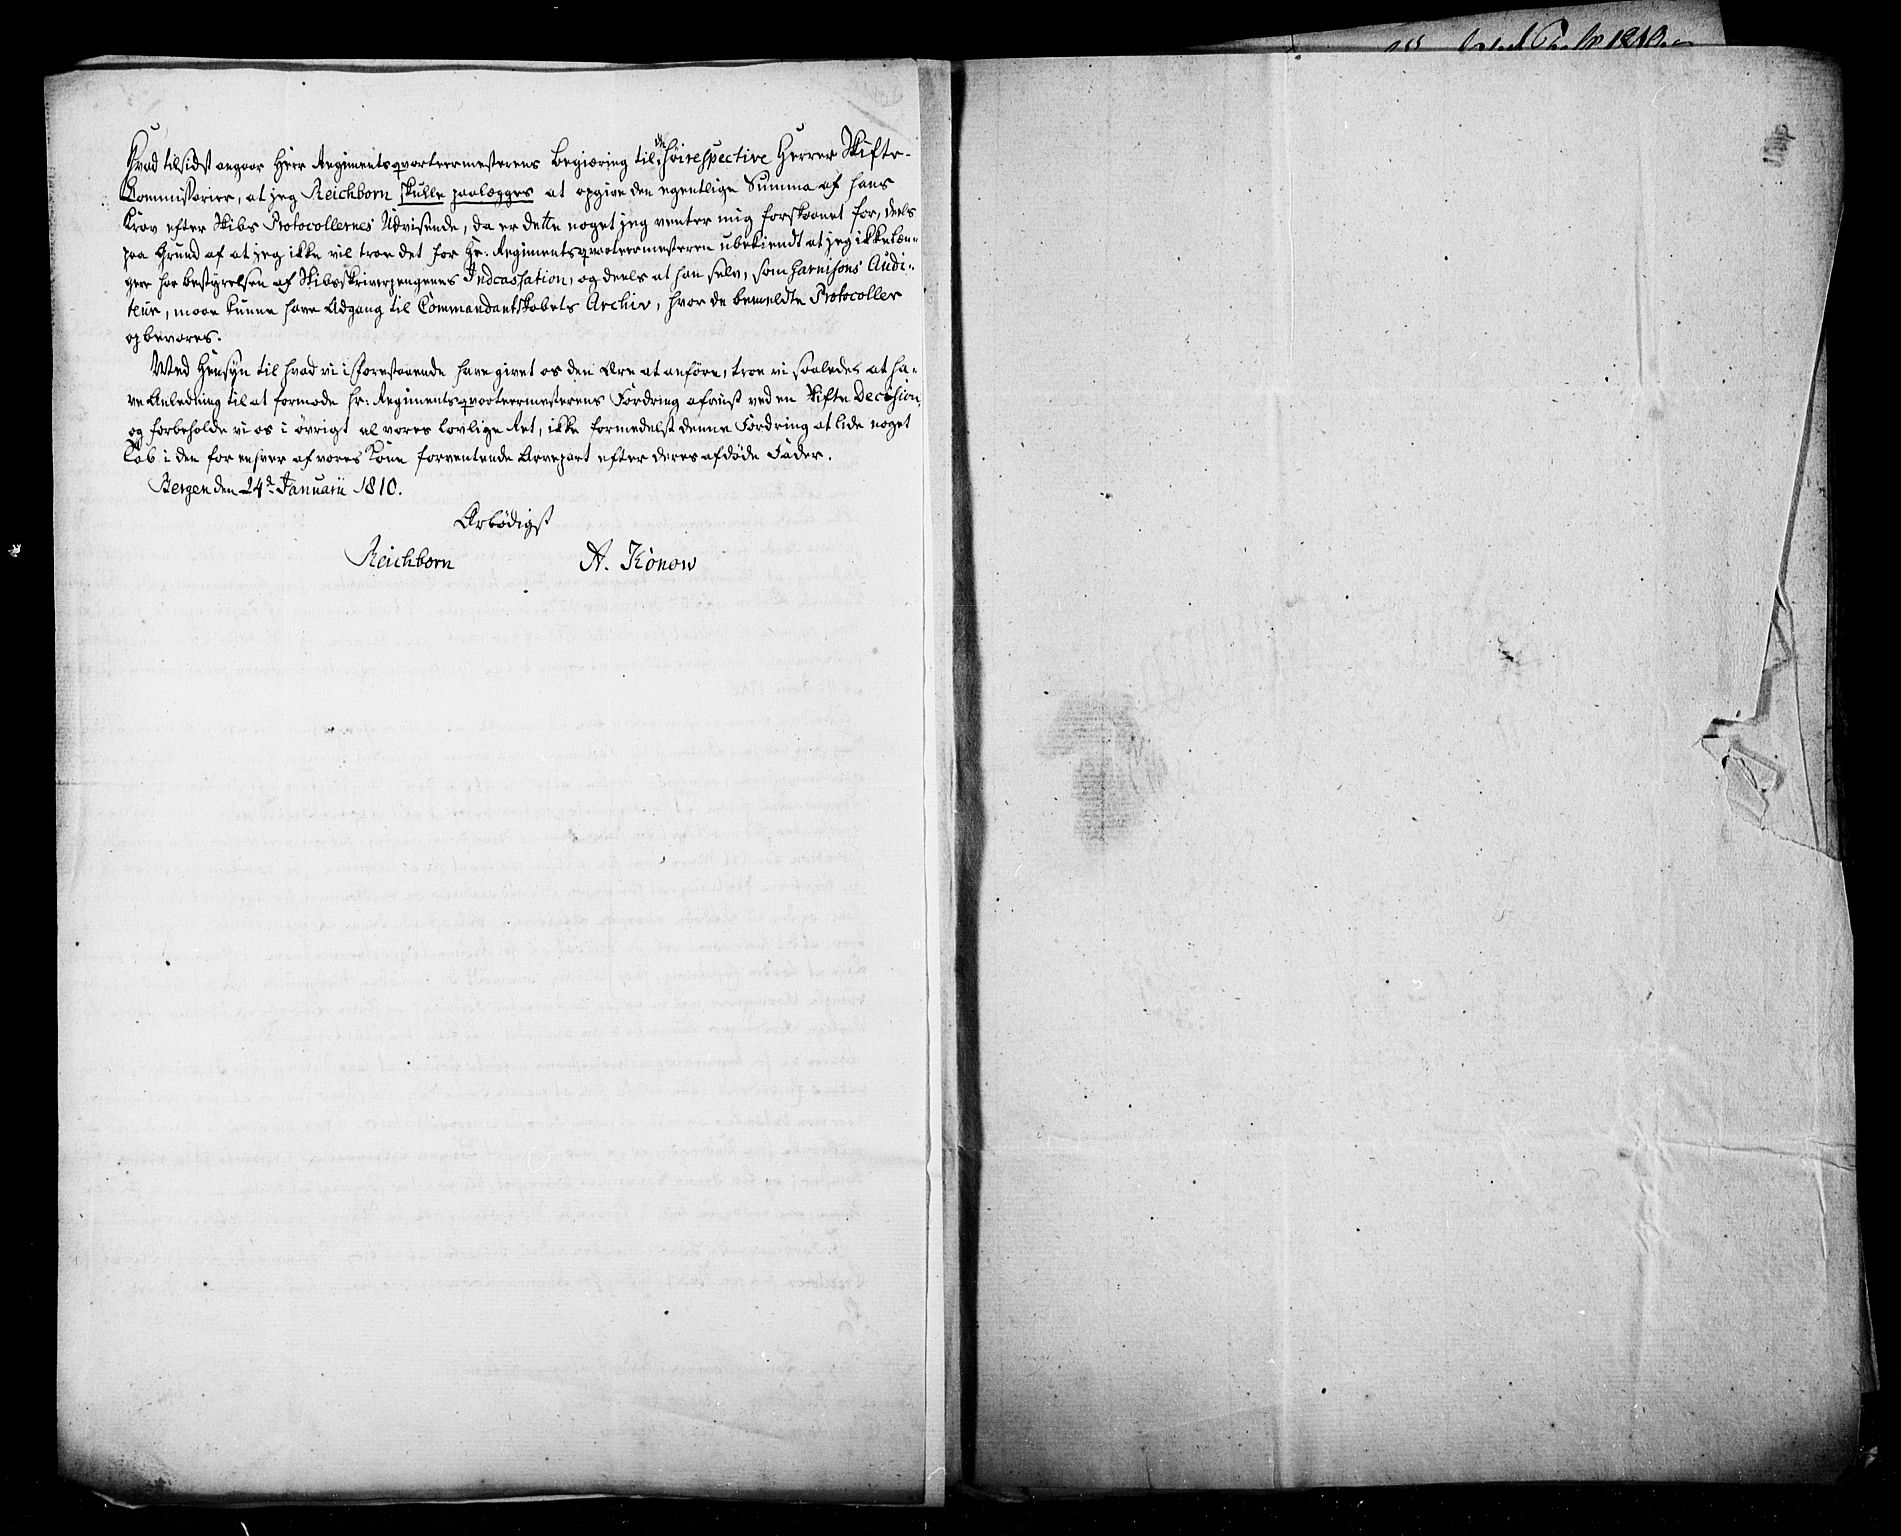 Hvad tilsidst angaar Herr Regimentsqvarteermesterens Begiæring til de Høirespective Herrer Skifte-
Commissarier, at jeg Reichborn skulle paalægges at opgive den egentlige Summa af hans
Krav efter Skibs Protocollernes Udvisende, da er dette noget jeg venter mig forskaanet for, deels
paa Grund af at jeg ikke vil troe det for Hr: Regimentsqvarteermesteren ubekiendt at jeg ikke læn-
gere har bestyrelsen af Skibsskriverpengenes Indcassation, og deels at han selv, som Garnisons Audi-
teur, maae kunne have Adgang til Commandantskabets Archiv, hvor de bemeldte Protocoller
opbevares.
Med Hensyn til hvad vi i forestaaende have givet os den Ære at anføre, troe vi saaledes at ha-
ve Anledning til at formode Hr: Regimentsqvarteermesterens Fordring afviist ved en Skifte Decision,
og forbeholde vi os i øvrigt al vores lovlige Ret, ikke formedelst denne Fordring at lide noget
Tab i den for enhver af vores Kone forventende Arvepart efter deres afdøde Fader.
Bergen den 24de Januarii 1810.
Ærbødigst
Reichborn A. Konow